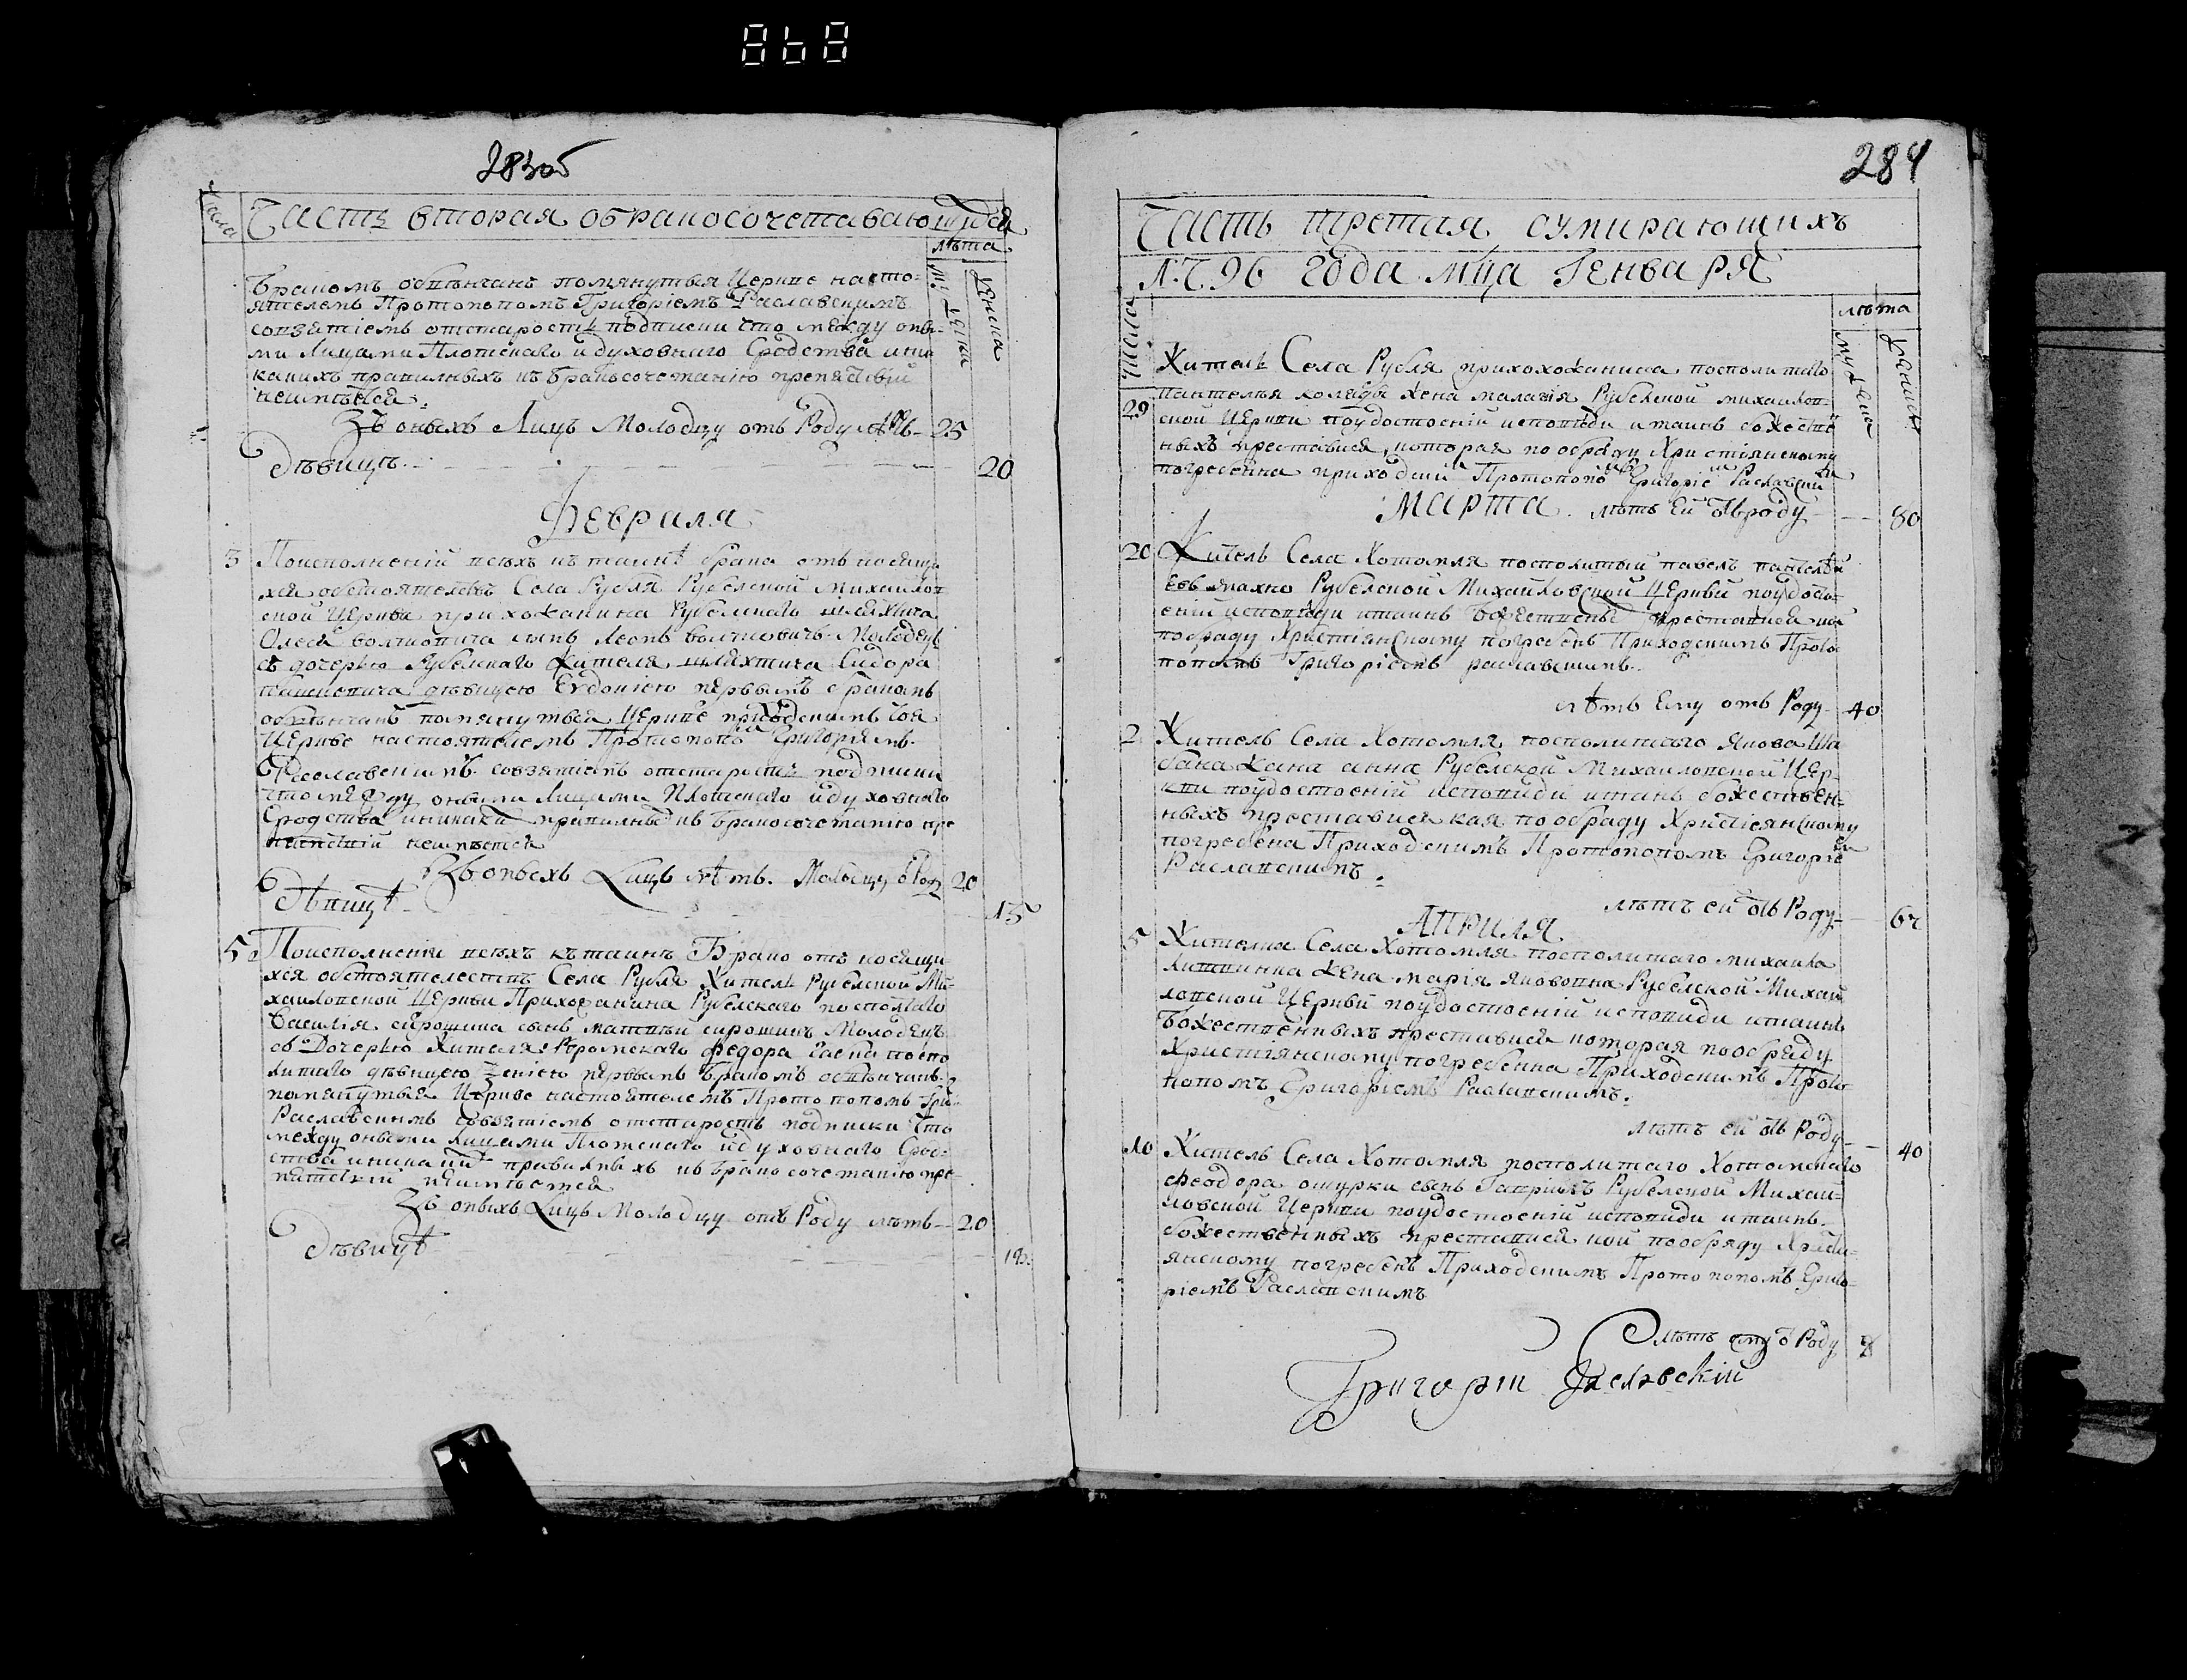 283об
Числа Часть вторая обракосочетавающихся
лѣта
Муческа
Женска
Бракомъ обвѣнчанъ помянутыя Церкве насто-
ятелемъ Протопопомъ Григоріемъ Раславскимъ
совзятіемъ отстаростъ подписки что между оны-
ми Лицами Плотскаго и духовнаго Сродства и ни
какихъ правилныхъ къ бракосочетанію препятствій
неимѣется.
Зъ оныхъ Лицъ Молодцу отъ Роду лѣтъ 25
Дѣвицѣ 20
Февраля
3 Поисполненій всѣхъ къ таинѣ брака отъ носящи
хся обстоятелствъ Села Рубля Рубелской Михаилов
ской Церкви прихожанина Рубелскаго шляхтича
Олесѧ волчковича сынъ Леонъ волчковичъ Молодецъ
съ дочерью Рубелскаго Жителя шляхтича Сидора
дѣвицею Евдокіею первымъ бракомъ
обвѣнчанъ помянутыя Церкве приходскимъ тоя
Церкве настоятелемъ Протопопомъ Григоріемъ
Раславскимъ совзятіемъ отстаростъ подписки
что между оными Лицами Плотскаго и духовнаго
Сродства и никаки правилныхъ къ бракосочетанію пре
пятствій неимѣется
Зъ оныхъ Лицъ лѣтъ Молодцу ѿ Роду 20
Дѣвицѣ 15
5 Поисполненіи всѣхъ къ таинѣ Брака отъ носящи
хся обстоятелствъ Села Рубля Жителъ Рубелской Ми-
хаиловской Церкви Прихожанина Рубелскаго посполитаго
Василія сирошика сынъ матвѣй сирошикъ Молодецъ
съ Дочерью Жителя Федора поспо
литаго дѣвицею Ксеніею первымъ бракомъ обвѣнчанъ
помянутыя Церкве настоятелемъ Протопопомъ Гри
Раславскимъ совзятіемъ отстаростъ подписки что
между оными лицами Плотскаго и духовнаго Срод-
ства и никаки правилныхъ къ бракосочетанію пре-
пятствій неимѣется
Зъ оныхъ Лицъ Молодцу отъ Роду лѣтъ 20
Дѣвицѣ 18
284
Часть третая оумирающихъ
1796 года мца Генваря
Числа
лѣта
мужеска
женска
29 Жителъ Села Рубля прихохожанина посполитаго
пантелѣя коляды жена малагія Рубелской михаилов-
ской Церкви поудостоеній исповѣди и таинъ божестве
ныхъ преставися, которая пообряду Христіянскому
погребенна приходскимъ Протопопомъ Григоріемъ Раславскимъ
Марта. лѣтъ Ей ѿ роду 80
20 Житель Села Хотомля посполитый павелъ пантелѣй
евъ махно Рубелской Михайловской Церкви поудосто-
еній исповѣди и таинъ божественныхъ преставися кой
пообряду Христіянскому погребенъ Приходскимъ Прото
попомъ Григоріемъ раславскимъ.
лѣтъ Ему отъ Роду 40
2 Житель Села Хотомля посполитаго Якова Ша
бана Жена анна Рубелской Михаиловской Цер-
кви поудостоеній исповиди и таинъ божествен-
ныхъ преставися кая пообряду Христіянскому
погребена Приходскимъ Протопопомъ Григоріемъ
Раславскимъ.
лѣтъ ей ѿ Роду 62
Априля
5 Жителка Села Хотомля посполитаго михаила
литвинка Жена марія якововна Рубелской Михаи
ловской Церкви поудостоеній исповиди и таинъ
Божественныхъ преставися которая пообряду
Христіянскому погребенна Приходскимъ Прото
попомъ Григоріемъ Раславскимъ.
лѣтъ ей ѿ Роду 40
10 Житель Села Хотомля посполитаго Хотомскаго
Феодора ошурки сынъ Гаврілъ Рубелской Михаи-
ловской Церкви поудостоеній исповиди и таинъ
божественныхъ преставися кой пообряду Христи-
янскому погребенъ Приходскимъ Протопопомъ Григо-
ріемъ Раславскимъ
лѣтъ ему ѿ Роду 8
Григорій Раславскій